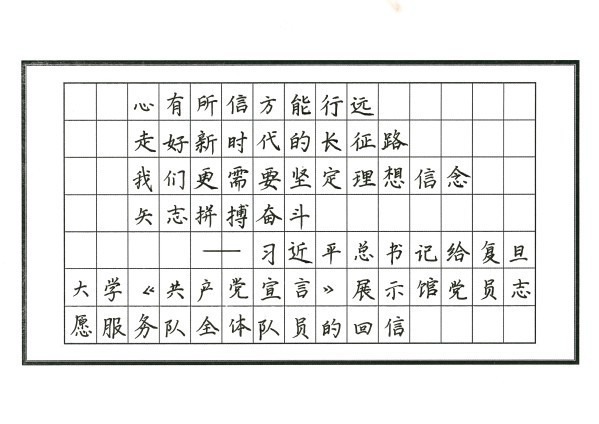 心有所信方能行远
走好新时代的长征路
我们更需要坚定理想信念
矢志拼搏奋斗
——习近平总书记给复旦
大学《共产党宣言》展示馆党员志
愿服务队全体队员的回信